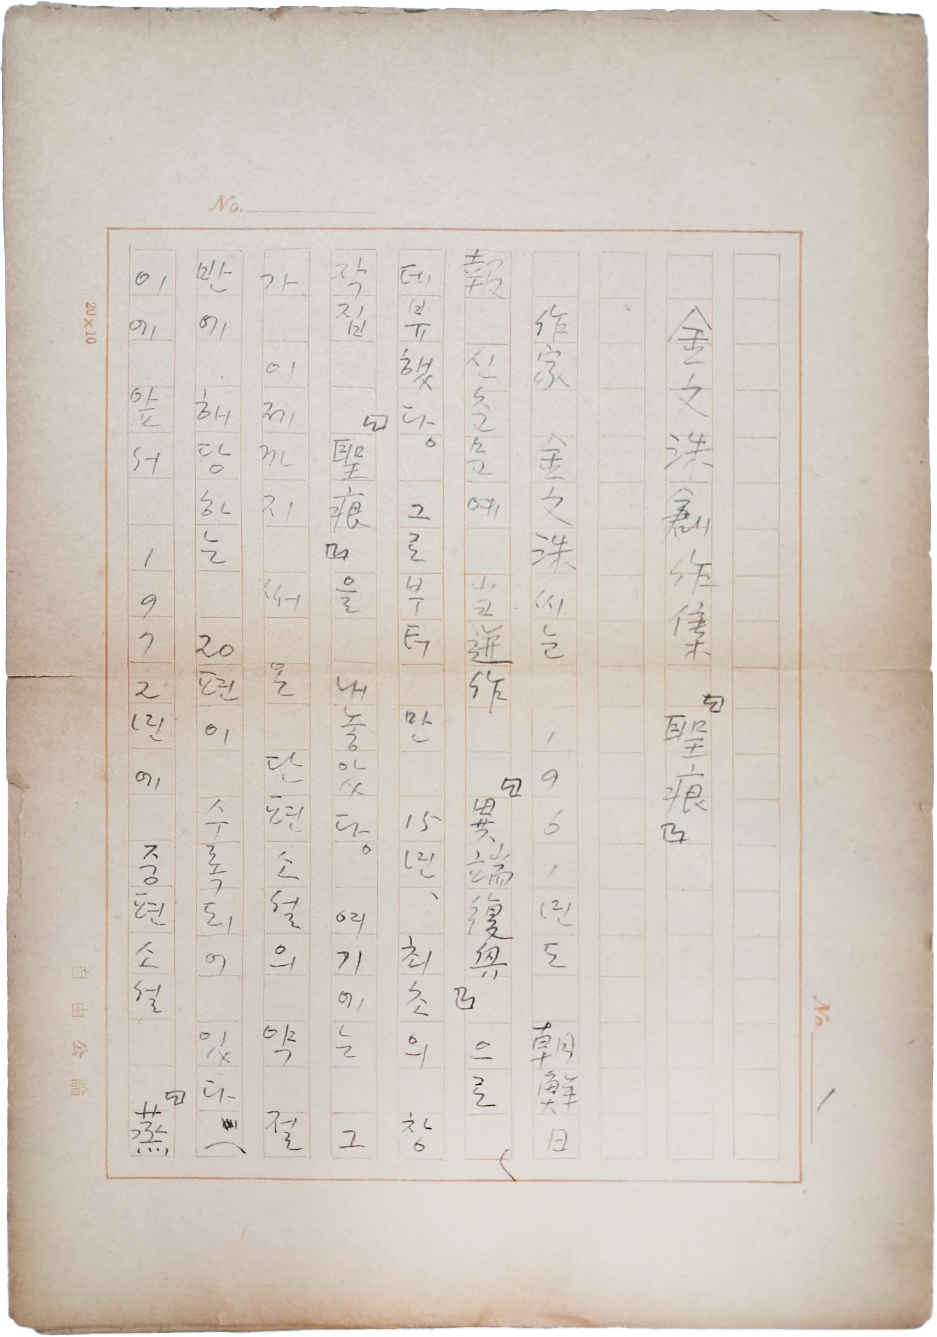 No.
No. 1
金文洙創作集『聖痕』
作家 金文洙씨는 1961년도 朝鮮日
報 신춘문예 当選作『異端復興』으로
데뷰했다。그로부터 만 15년、최초의 창
작집『聖痕』을 내놓았다。여기에는 그
가 이제까지 써 온 단편소설의 약 절
반에 해당하는 20편이 수록되어 있다。
이에 앞서 1972년에 중편소설『蒸
20x10
自由公論